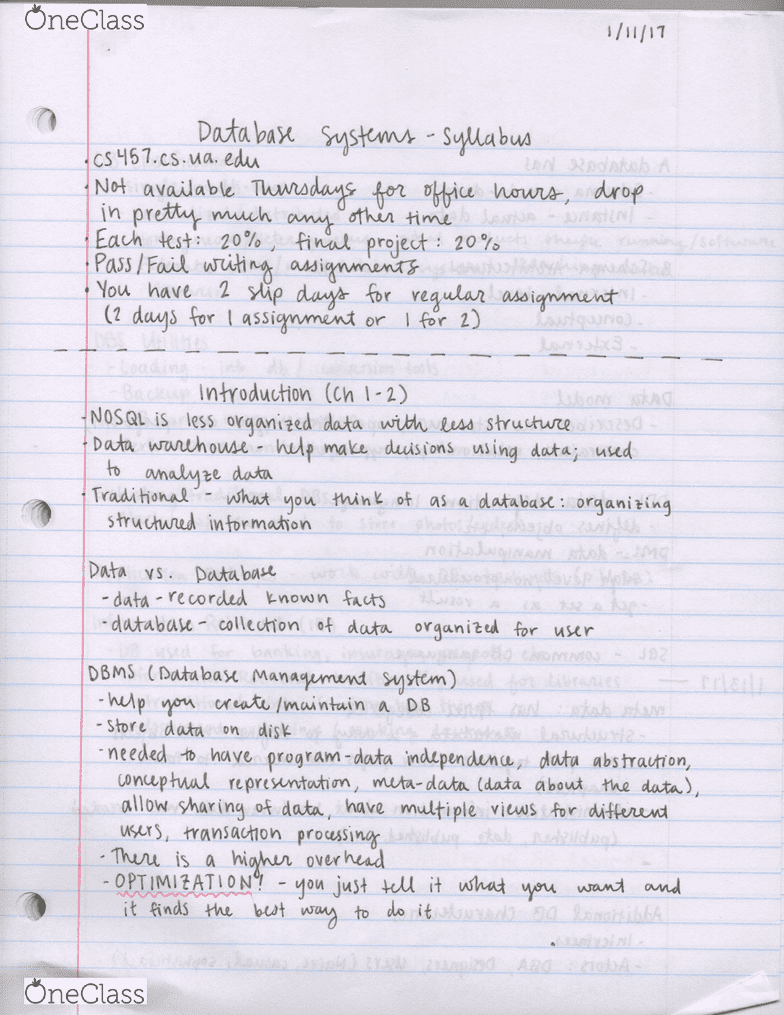 OneClass
1/11/17
Database Systems - Syllabus
· cs457.cs.ua.edu
· Not available Thursdays for office hours, drop
in pretty much any other time
· Each test: 20%, final project: 20%
· Pass/Fail writing assignments
· You have 2 slip days for regular assignment
(2 days for 1 assignment or 1 for 2)
Introduction (Ch 1-2)
· NOSQL is less organized data with less structure
· Data warehouse - help make decisions using data; used
to analyze data
· Traditional - what you think of as a database: organizing
structured information
Data vs. Database
- data - recorded known facts
- database - collection of data organized for user
DBMS (Database Management System)
- help you create/maintain a DB
- store data on disk
- needed to have program-data independence, data abstraction,
conceptual representation, meta-data (data about the data),
allow sharing of data, have multiple views for different
users, transaction processing
- There is a higher overhead
- OPTIMIZATION! - you just tell it what you want and
it finds the best way to do it
OneClass